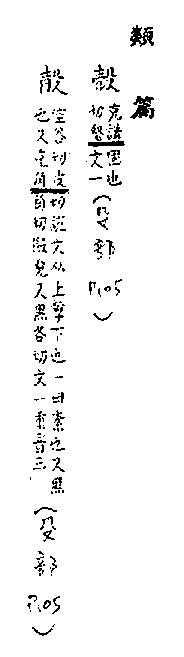 類篇
殼 克講
切 文一 (殳部 P.105)
殻 空谷切皮切說文从上擊下也一曰素也又黑
也又克角切皃又黑各切文一重音三 (殳部 P.105)